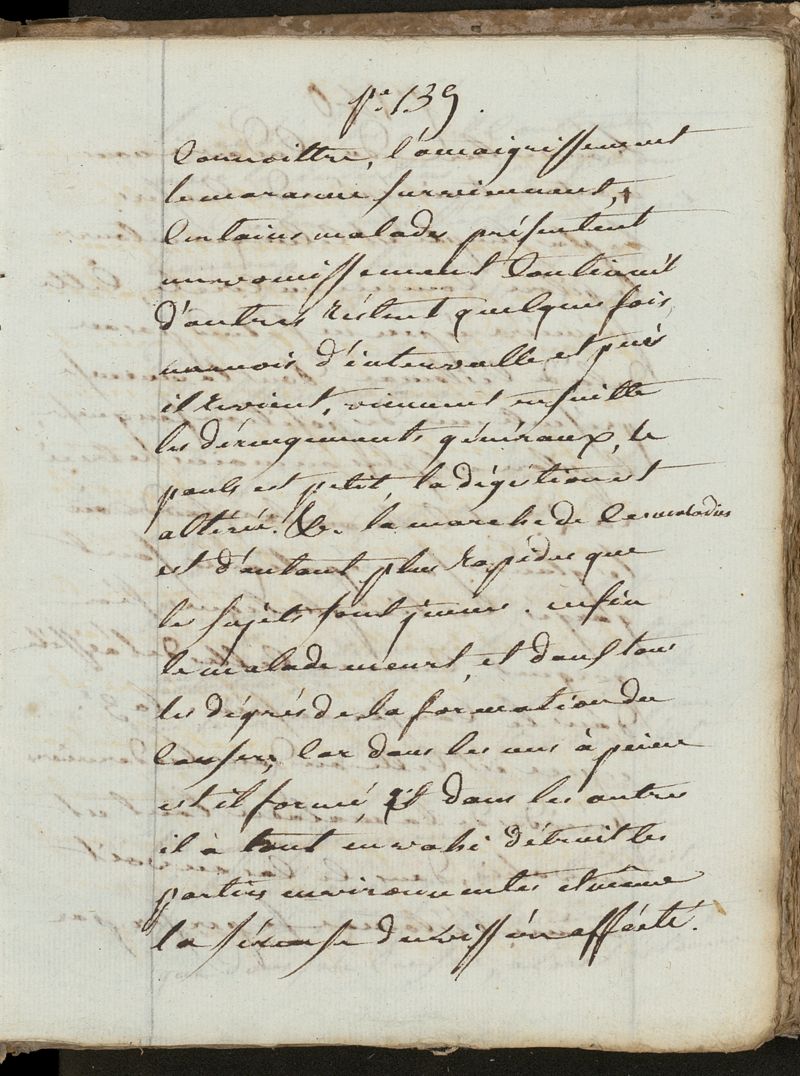 pe. 139.
Connoittre, l'amaigrissement
le marasme surviennent,
Certains malades présentent
un vomissement Continuel
d'autres réstent quelques fois,
un mois d'intervalle et puis
il revient, viennent ensuitte
les dérengements généraux, le
pouls est petit, la digéstion est
altérée. &c. la marche de Ces maladies
est d'autant plus rapide que
le sujets sont jeunes. enfin
le malade meurt, et dans tous
les dégrés de la formation du
Canser, Car dans les uns à peine
est il formé, et dans les autres
il à tout envahi détruit les
parties environnentes et même
la séreuse du viscére afféctée.